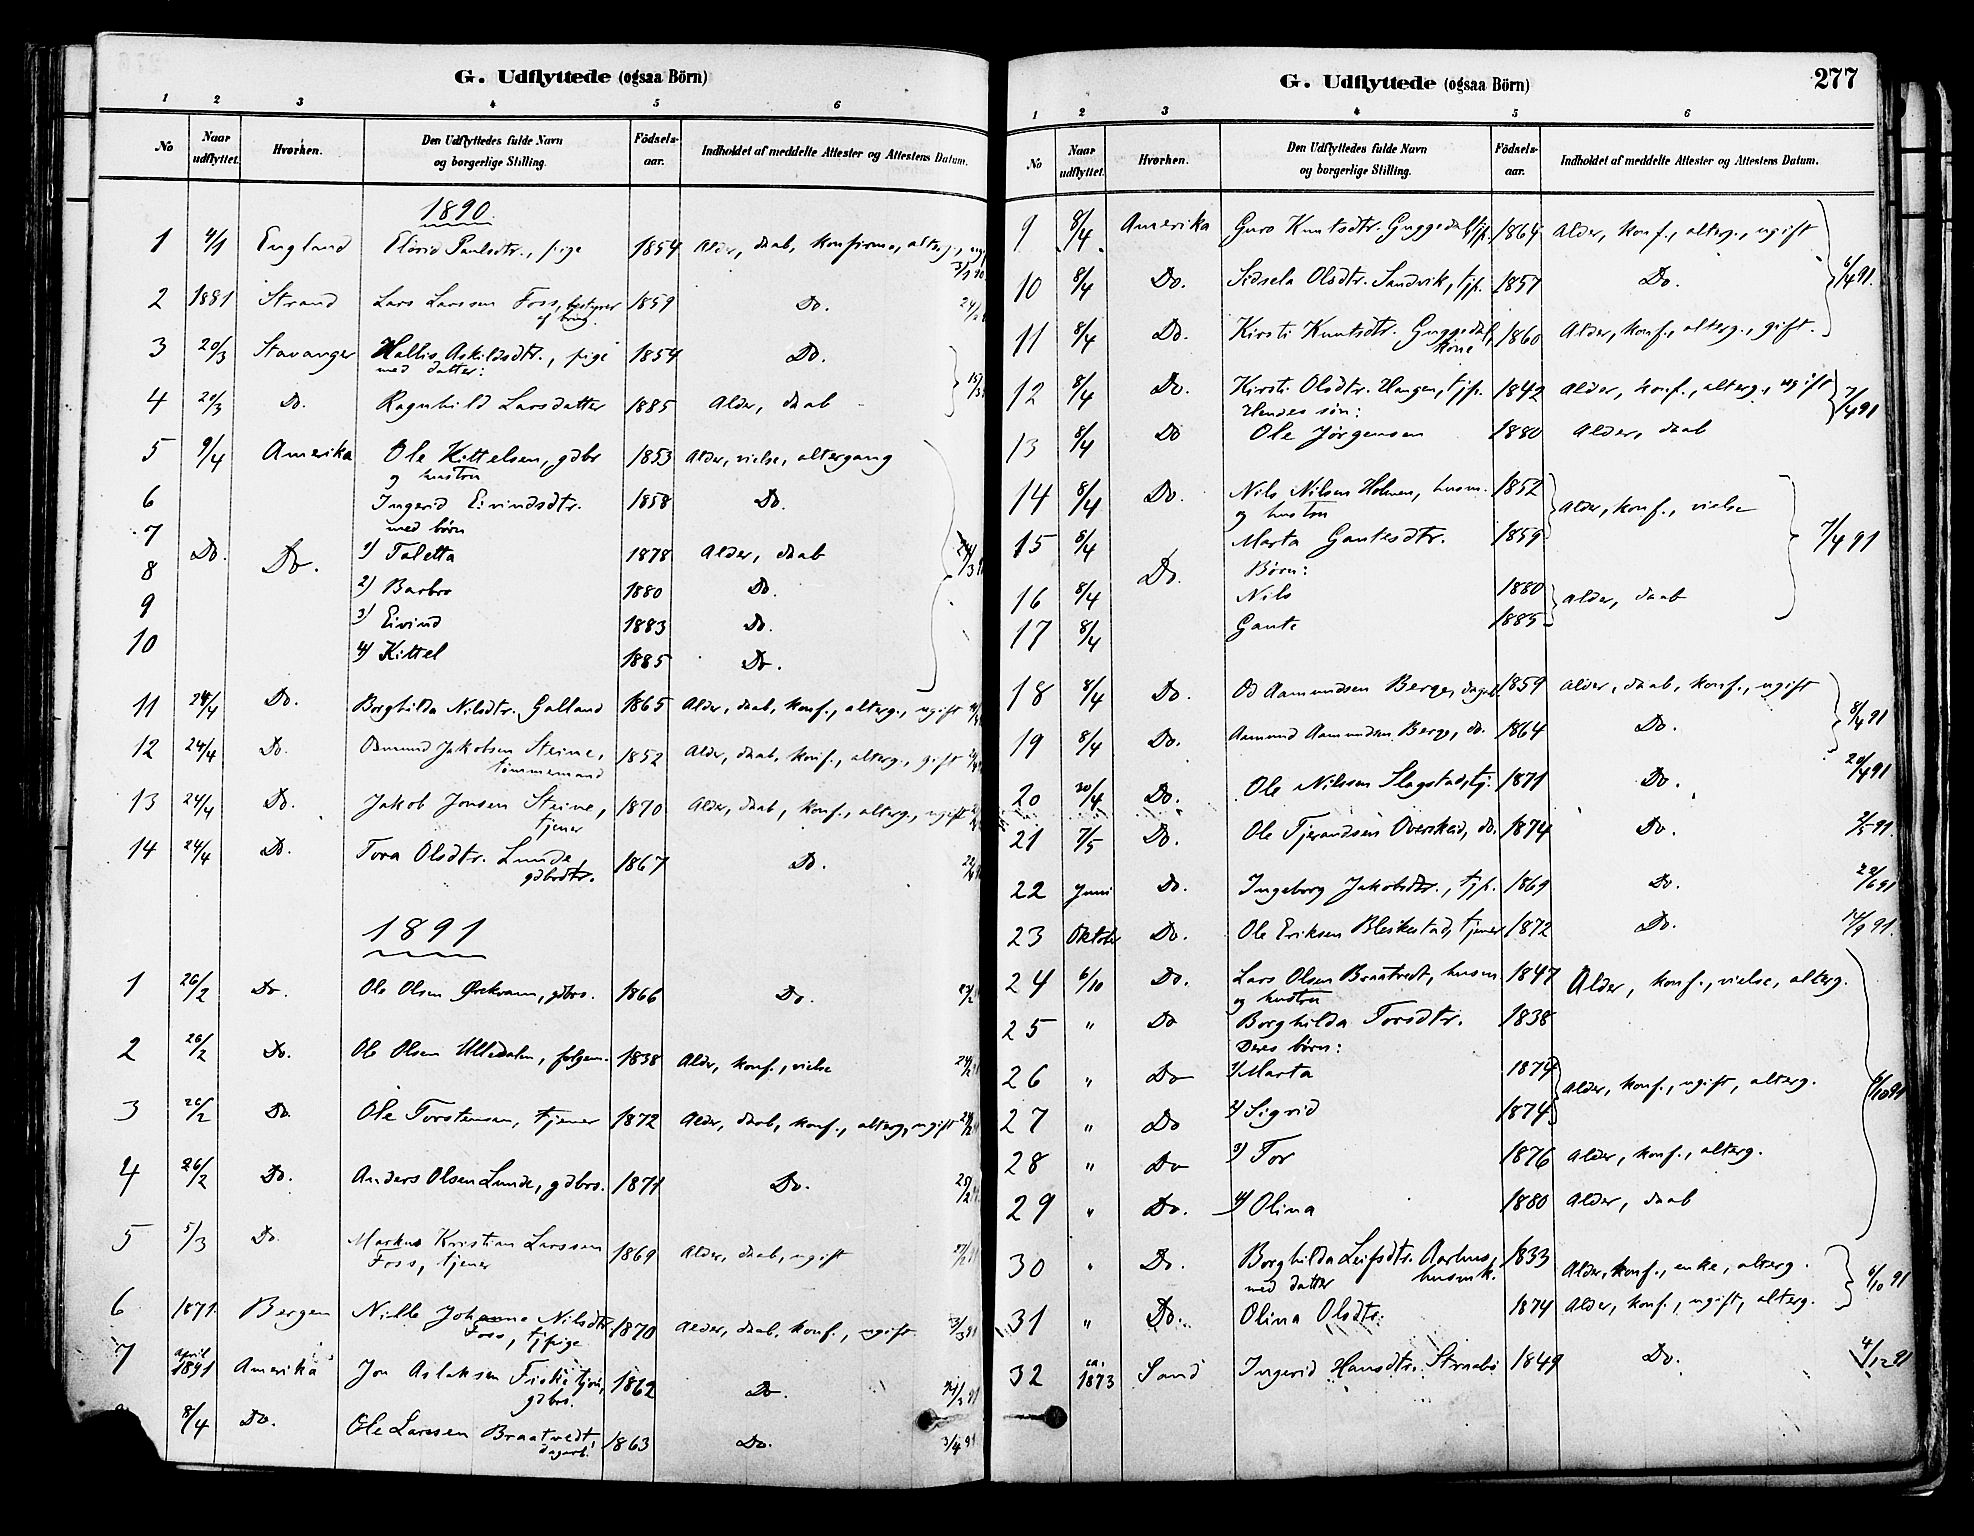 G. Udflyttede (ogsaa Börn)
1 2 3 4 5 6
No Naar udflyttet. Hvorhen. Den Udflyttedes fulde Navn og borgerlige Stilling. Födsels-aar. Indholdet af meddelte Attester og Attestens Datum.
1890
1 4/1 England Paulsdtr., pige 1854 Alder, daab, konfirma, alterg.,
2 1881 Strand Lars Larssen Foss, bestyrer 1859 Do.
af brug.
3 20/3 Stavanger Hallis Askildsdtr., pige 1854 Do.
med datter:
4 20/3 Do. Ragnhild Larsdatter 1885 Alder, daab
5 9/4 Amerika Ole Kittelsen, gdbr 1853 Alder, vielse, altergang
og hustru
6 Ingerid Eivindsdtr. 1858 Do.
med børn
7 Do. Do. 1) Taletta 1878 Alder, daab
8 2) Barbro 1880 Do.
9 3) Eivind 1883 Do.
10 4) Kittel 1885 Do.
11 24/4 Do. Borghilda Nilsdtr. Galland 1865 Alder, daab, konf., alterg., ugift
12 24/4 Do. Osmund Jakobsen Steine, 1852 Alder, daab, konf., alterg., gift
tømmermand
13 24/4 Do. Jakob Jonsen Steine, 1870 Alder, daab, konf., alterg., ugift
tjener
14 24/4 Do. Tora Olsdtr. Lunde, 1867 Do.
gdbrdtr.
1891
1 26/2 Do. Ole Olsen Ørekvam, gdbrs. 1866 Do.
2 26/2 Do. Ole Olsen Ulledalen, følgem. 1838 Alder, konf., vielse
3 26/2 Do. Ole Torstensen, tjener 1872 Alder, daab, konf., alterg., ugift
4 26/2 Do. Anders Olsen Lunde, gdbrs. 1871 Do.
5 5/3 Do. Markus Kristian Larssen 1869 Alder, daab, ugift
Foss, tjener
6 1871 Bergen Nille Johanna Nilsdtr. 1870 Alder, daab, konf., ugift 3/3 91
Foss, tjpige
7 april 1891 Amerika Jon Aslaksen Fisketjøn, 1862 Do.
gdbrs.
8/4 Do. Ole Larssen Braatvedt, 1863 Do. 3/4 91
dagarb.
G. Udflyttede (ogsaa Börn) 277
1 2 3 4 5 6
No Naar udflyttet. Hvorhen. Den Udflyttedes fulde Navn og borgerlige Stilling. Födsels-aar. Indholdet af meddelte Attester og Attestens Datum.
9 8/4 Amerika Guro Knutsdtr. Guggedal, tjp. 1864 Alder, konf., alterg., ugift
10 8/4 Do. Sidsela Olsdtr. Sandvik, tjp. 1857 Do. 6/4 91.
11 8/4 Do. Kirsti Knutsdtr. Guggedal, 1860 Alder, konf., alterg., gift.
kone
12 8/4 Do. Kirsti Olsdtr. Haugen, tjp. 1842 Alder, konf., alterg., ugift 7/4 91
Hendes søn:
13 8/4 Do Ole Jørgensen 1880 Alder, daab
14 8/4 Do. Nils Nilsen Holmen, husm. 1852 Alder, konf., vielse
og hustru
15 8/4 Marta Gautesdtr. 1859 7/4 91
Do. Børn:
16 8/4 Nils 1880 Alder, daab
17 8/4 Gaute 1885
18 8/4 Do. Od Aamundsen Berge, dagarb. 1859 Alder, daab, konf., ugift 8/4 91
19 8/4 Do. Aamund Aamundsen Berge, do. 1864 Do.
20 20/4 Do. Ole Nilssen Slagstad, tj. 1871 Do. 20/4 91
21 7/5 Do. Ole Tjerandsen Overskeid, do. 1874 Do. 2/5 91.
22 Juni Do. Ingeborg Jakobsdtr., tjp. 1869 Do.
23 Oktober Do. Ole Eriksen Bleskestad, tjener 1872 Do. 14/9 91.
24 6/10 Do. Lars Olsen Braatvedt, husm. 1847 Alder, konf., vielse, alterg.
og hustru
25 " Do Borghilda Torsdtr. 1838
Deres børn:
26 " Do 1) Marta 1874 Alder, konf., ugift, alterg. 6/10 91
27 " Do 2) Sigrid 1874
28 " Do 3) Tor 1876 Alder, konf., alterg.
29 " Do. 4) Olina 1880 Alder, daab
30 " Do. Borghilda Leifsdtr. Aarhus, 1833 Alder, konf., enke, alterg. 6/10 91
med datter husmk.
31 " Do. Olina Olsdtr. 1874 Alder, konf., ugift, alterg.
32 ca. 1873 Sand Ingerid Hansdtr. Strabø 1849 Do. 4/12 91